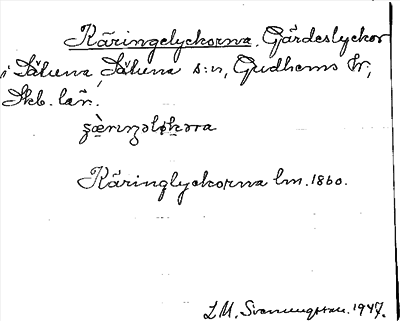 Käringelyckorna. Gärdeslyckor
i Sätuna, Sätuna s:n, Gudhems hr,
Skb. län.
Käringlyckorna lm. 1860.
L M. Svanungsson. 1947.